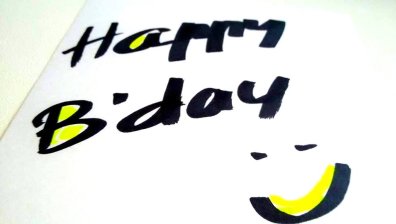 Happy
B'day